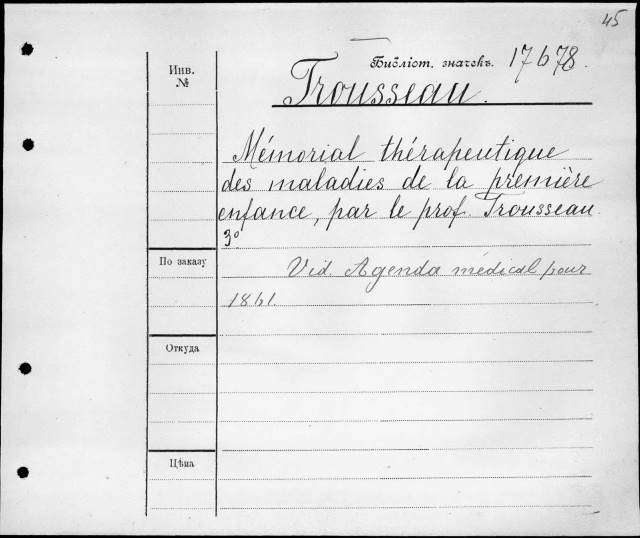 45
Библіот. значекъ. 17678.
Инв.
№
Trousseau.
Mémorial thérapeutique
des maladies de la première
enfance, par le prof. Trousseau.
3º
По заказу
Vid. Agenda médical pour
1861.
Откуда
Цѣна